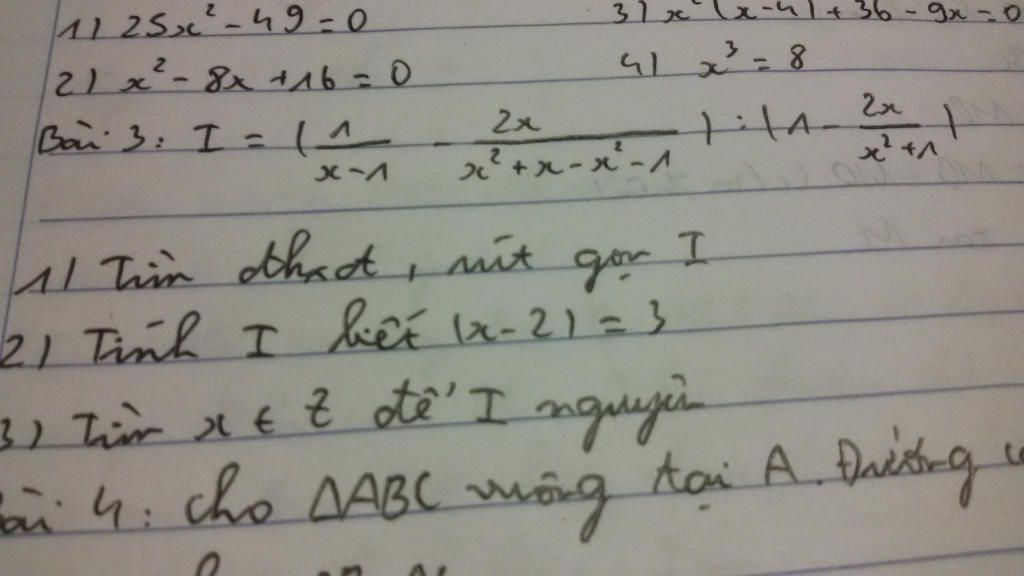 1) 25x² - 49 = 0
3) x² (x-4) + 36 - 9x = 0
2) x² - 8x + 16 = 0
4) x³ = 8
Bài 3: I = (1/(x-1) - 2x/(x²+x-x²-1)) : (1 - 2x/(x²+1))
1) Tìm đkxđ, rút gọn I
2) Tính I biết |x-2| = 3
3) Tìm x ∈ Z để I nguyên
Bài 4: Cho ΔABC vuông tại A. Đường